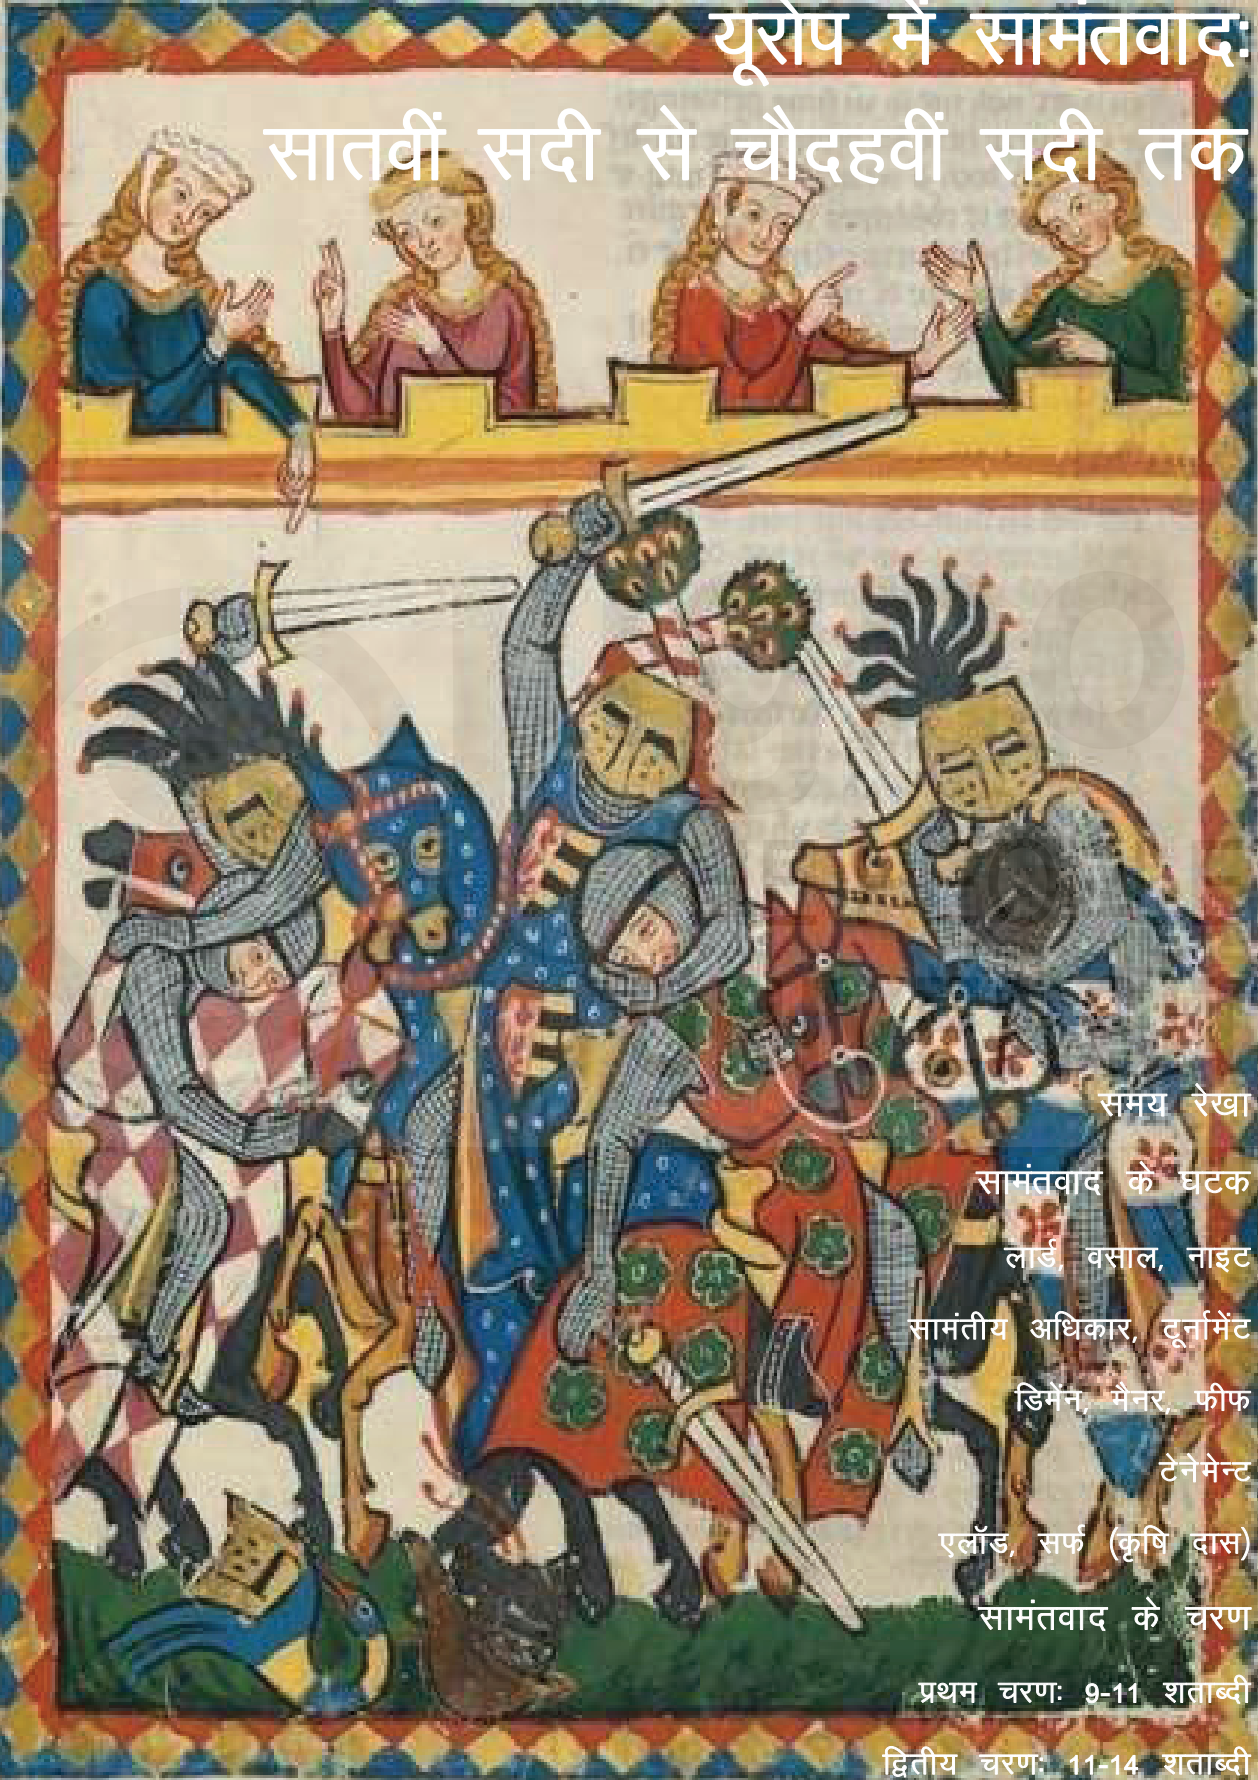 यूरोप में सामंतवादः
सातवीं सदी से चौदहवीं सदी तक
समय रेखा
सामंतवाद के घटक
लार्ड, वसाल, नाइट
सामंतीय अधिकार, टूर्नामेंट
डिमेंन, मैनर, फीफ
टेनेमेन्ट
एलॉड, सर्फ (कृषि दास)
सामंतवाद के चरण
प्रथम चरणः 9-11 शताब्दी
द्वितीय चरणः 11-14 शताब्दी